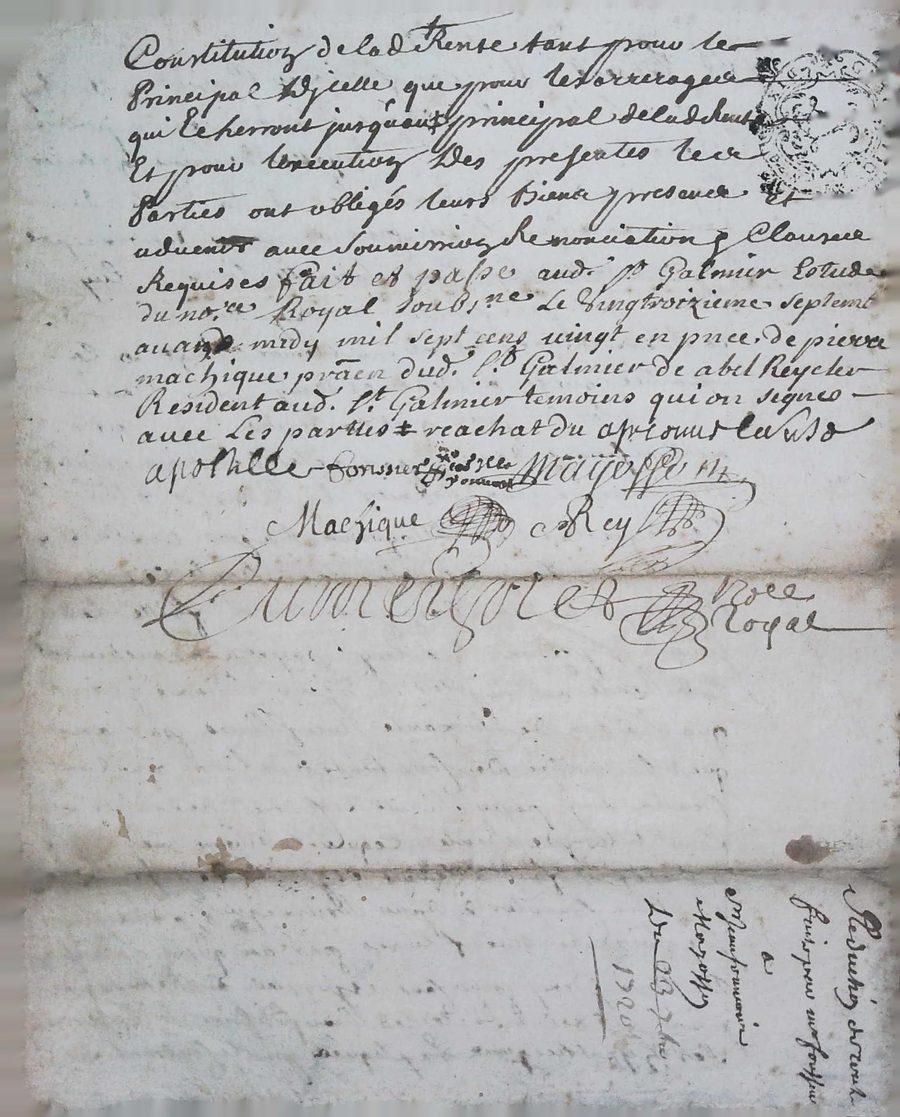 Constitution delad Rente tant pour le
Principal Dicelle que pour les arrerages
qui Echerront jusquau ‡ principal delad Rente
Et pour lexecution Des presentes les
Parties ont obligés leurs Biens presens Et
advenir avec soumission Renonciation & Clauses
Requises fait et passe aud. St Galmier Estude
du nore. Royal soubsne Le vingtroizieme septemb
avand midy mil sept cens vingt en pnce. de pierre
machique praen dud. St Galmier de abel Reycler
Resident aud. St Galmier temoins qui on signes
avec Les parties ‡ reachat du
apostille
Machique Rey
nore
Royal
Reduction de rente
a
Du 23 7bre
1720